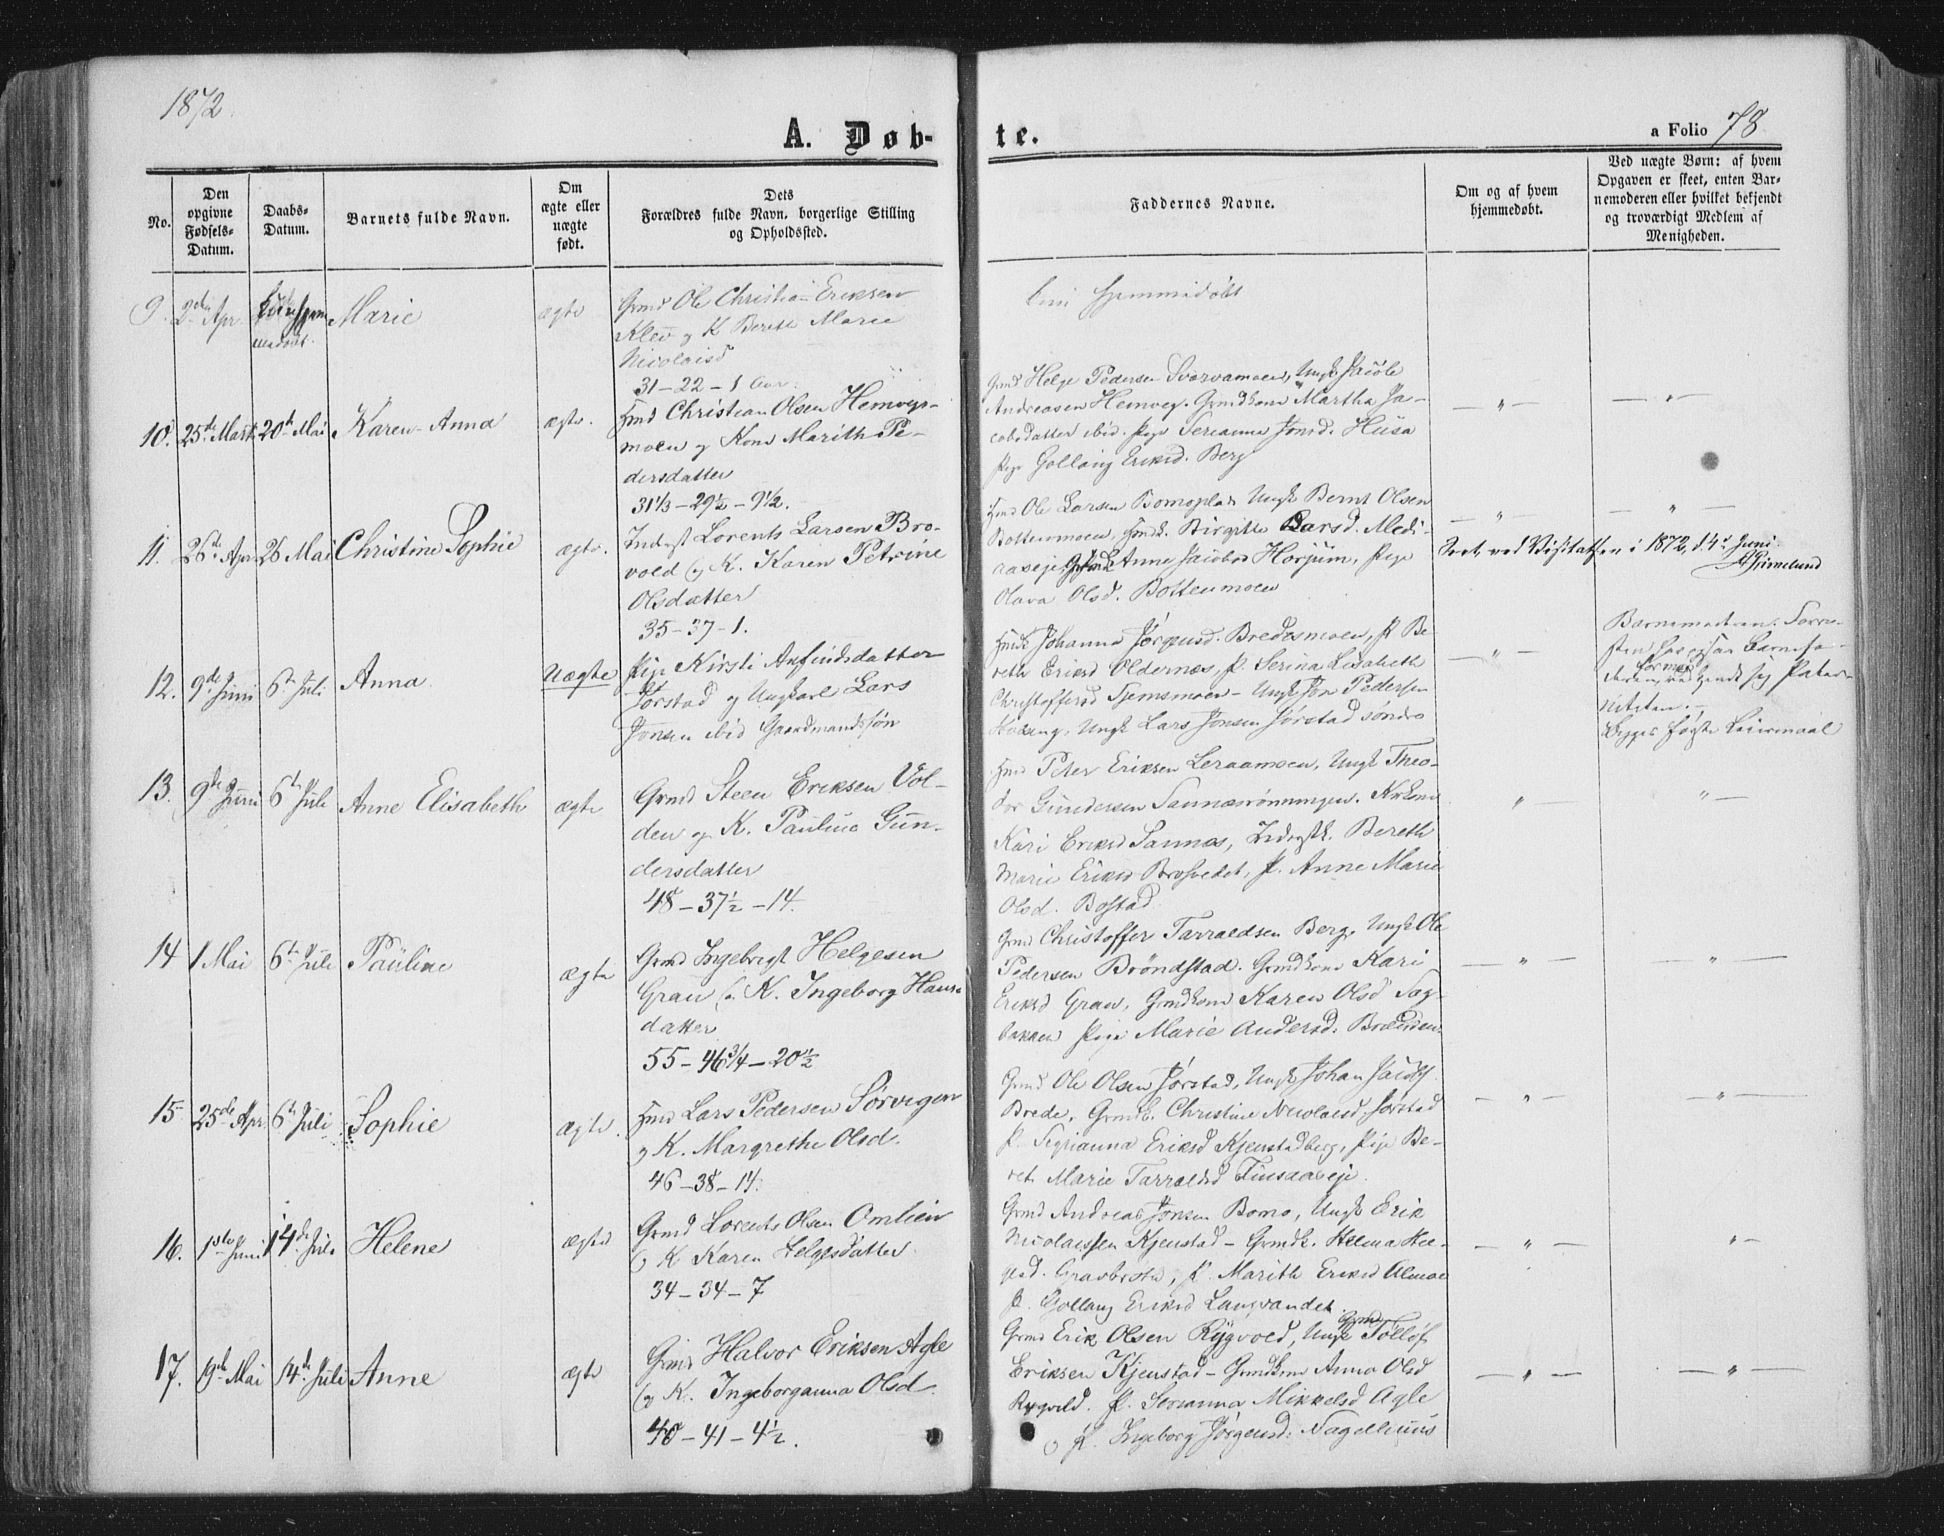 1872.
A. Døb-
te.
a Folio 78
No.
Den
opgivne
Fødsels-
Datum.
Daabs-
Datum.
Barnets fulde Navn.
Om
ægte eller
uægte
født.
Dets
Forældres fulde Navn, borgerlige Stilling
og Opholdssted.
Faddernes Navne.
Om og af hvem
hjemmedøbt.
Ved uægte Børn: af hvem
Opgaven er skeet, enten Bar-
nemoderen eller hvilket bekjendt
og troværdigt Medlem af
Menigheden.
9. 2den Apr. Marie ægte
Grmd Ole Christian Eriksen
Klev og K Bereth Marie
Nicolaisd
31-22-1 Aar.
hjemmedøbt
10. 25de Marts 20de Mai Karen Anna ægte.
Hmd Christian Olsen Hemveps-
moen og Kone Marith Pe-
dersdatter
31⅓-29½-9½.
Grmd Helge Pedersen Svarvamoen, Ungk
Andreasen Hemveg. Grmdkone Martha Ja-
cobsdatter ibid. Pige Serianna Jonsd. Husa
Pige Gollaug Eriksd. Berg
11. 26de Apr 26 Mai Christine Sophie ægte.
Inderst Lorents Larsen Bro-
vold og K. Karen Petrine
Olsdatter
35-37-1.
Hmd Ole Larsen Bomoplads Ungk Bernt Olsen
Bottenmoen, Hmdk. Birgitte Larsd. Medi-
aaseje Anne Jacobsd Horjum, Pige
Olava Olsd. Bottenmoen
Seet ved Visitatsen i 1872, d. 4de Juni.
AGrimelund
12. 9de Juni 6te Juli Anna Uægte
Pige Kirsti Anfindsdatter
Jørstad og Ungkarl Lars
Jonsen ibid Gaardmandssøn
Hmdk Johanna Jørgensd. Bredesmoen, P. Be-
reth Eriksd Oldernæs, P. Serina Lisabeth
Christoffersd Tjemsmoen - Ungk Jon Pedersen
Ungk Lars Jonsen Jørstad søndre
Barnemoderen.
Barnefa-
sig Pater-
niteten.-
Begges første Leiermaal
13. 9de Juni 6te Juli Anne Elisabeth ægte
Grmd Steen Eriksen Vol-
den og K. Pauline Gun-
dersdatter
48-37½-14.
Hmd Peter Eriksen Leraamoen, Ungk Theo-
dor Gundersen Sannesrønningen.
Kari Eriksd Sannes, Inderstk. Bereth
Marie Eriksd P. Anne Marie
Olsd. Bostad
14 1 Mai 6te Juli Pauline ægte
Grmd Ingebrigt Helgesen
Gran og K. Ingeborg Hans-
datter
55-46¾-20½
Grmd Christoffer Tarraldsen Berg, Ungk Ole
Pedersen Brøndstad. Grmdkone Kari
Eriksd Gran, Grmdkone Karen Olsd Sag-
bakken Pige Marie Andersd.
15 25de Apr 6te Juli Sophie ægte.
Hmd Lars Pedersen Sørvigen
og K. Margrethe Olsd.
46-38-14.
Grmd Ole Olsen Jørstad, Ungk Johan
Brede, Grmdk. Christine Nicolaisd. Jørstad
P. Sigrianna Eriksd Kjenstadberg, Pige Be-
ret Marie Tarraldsd Finsaaseje.
16. 1ste Juni 14de Juli Helene ægte
Grmd Lorents Olsen Omlien
og K Karen Helgesdatter.
34-34-7
Grmd Andreas Jonsen Bomo, Ungk Erik
Nicolaissen Kjenstad - Grmdk. Helena Hel-
gesd. P. Marith Eriksd Almoe
P. Gollaug Eriksd Langvandet.
17. 19de Mai 14de Juli Anne ægte
Grmd Halvor Eriksen Agle
og K. Ingeborganna Olsd.
40-41-4½.
Grmd Erik Olsen Rygvold, Ungk Grmd Tollof
Eriksen Kjenstad - Grmdkone Anna Olsd
Rygvold. P. Serianna Mikkelsd Agle
og P. Ingeborg Jørgensd. Nagelhuus